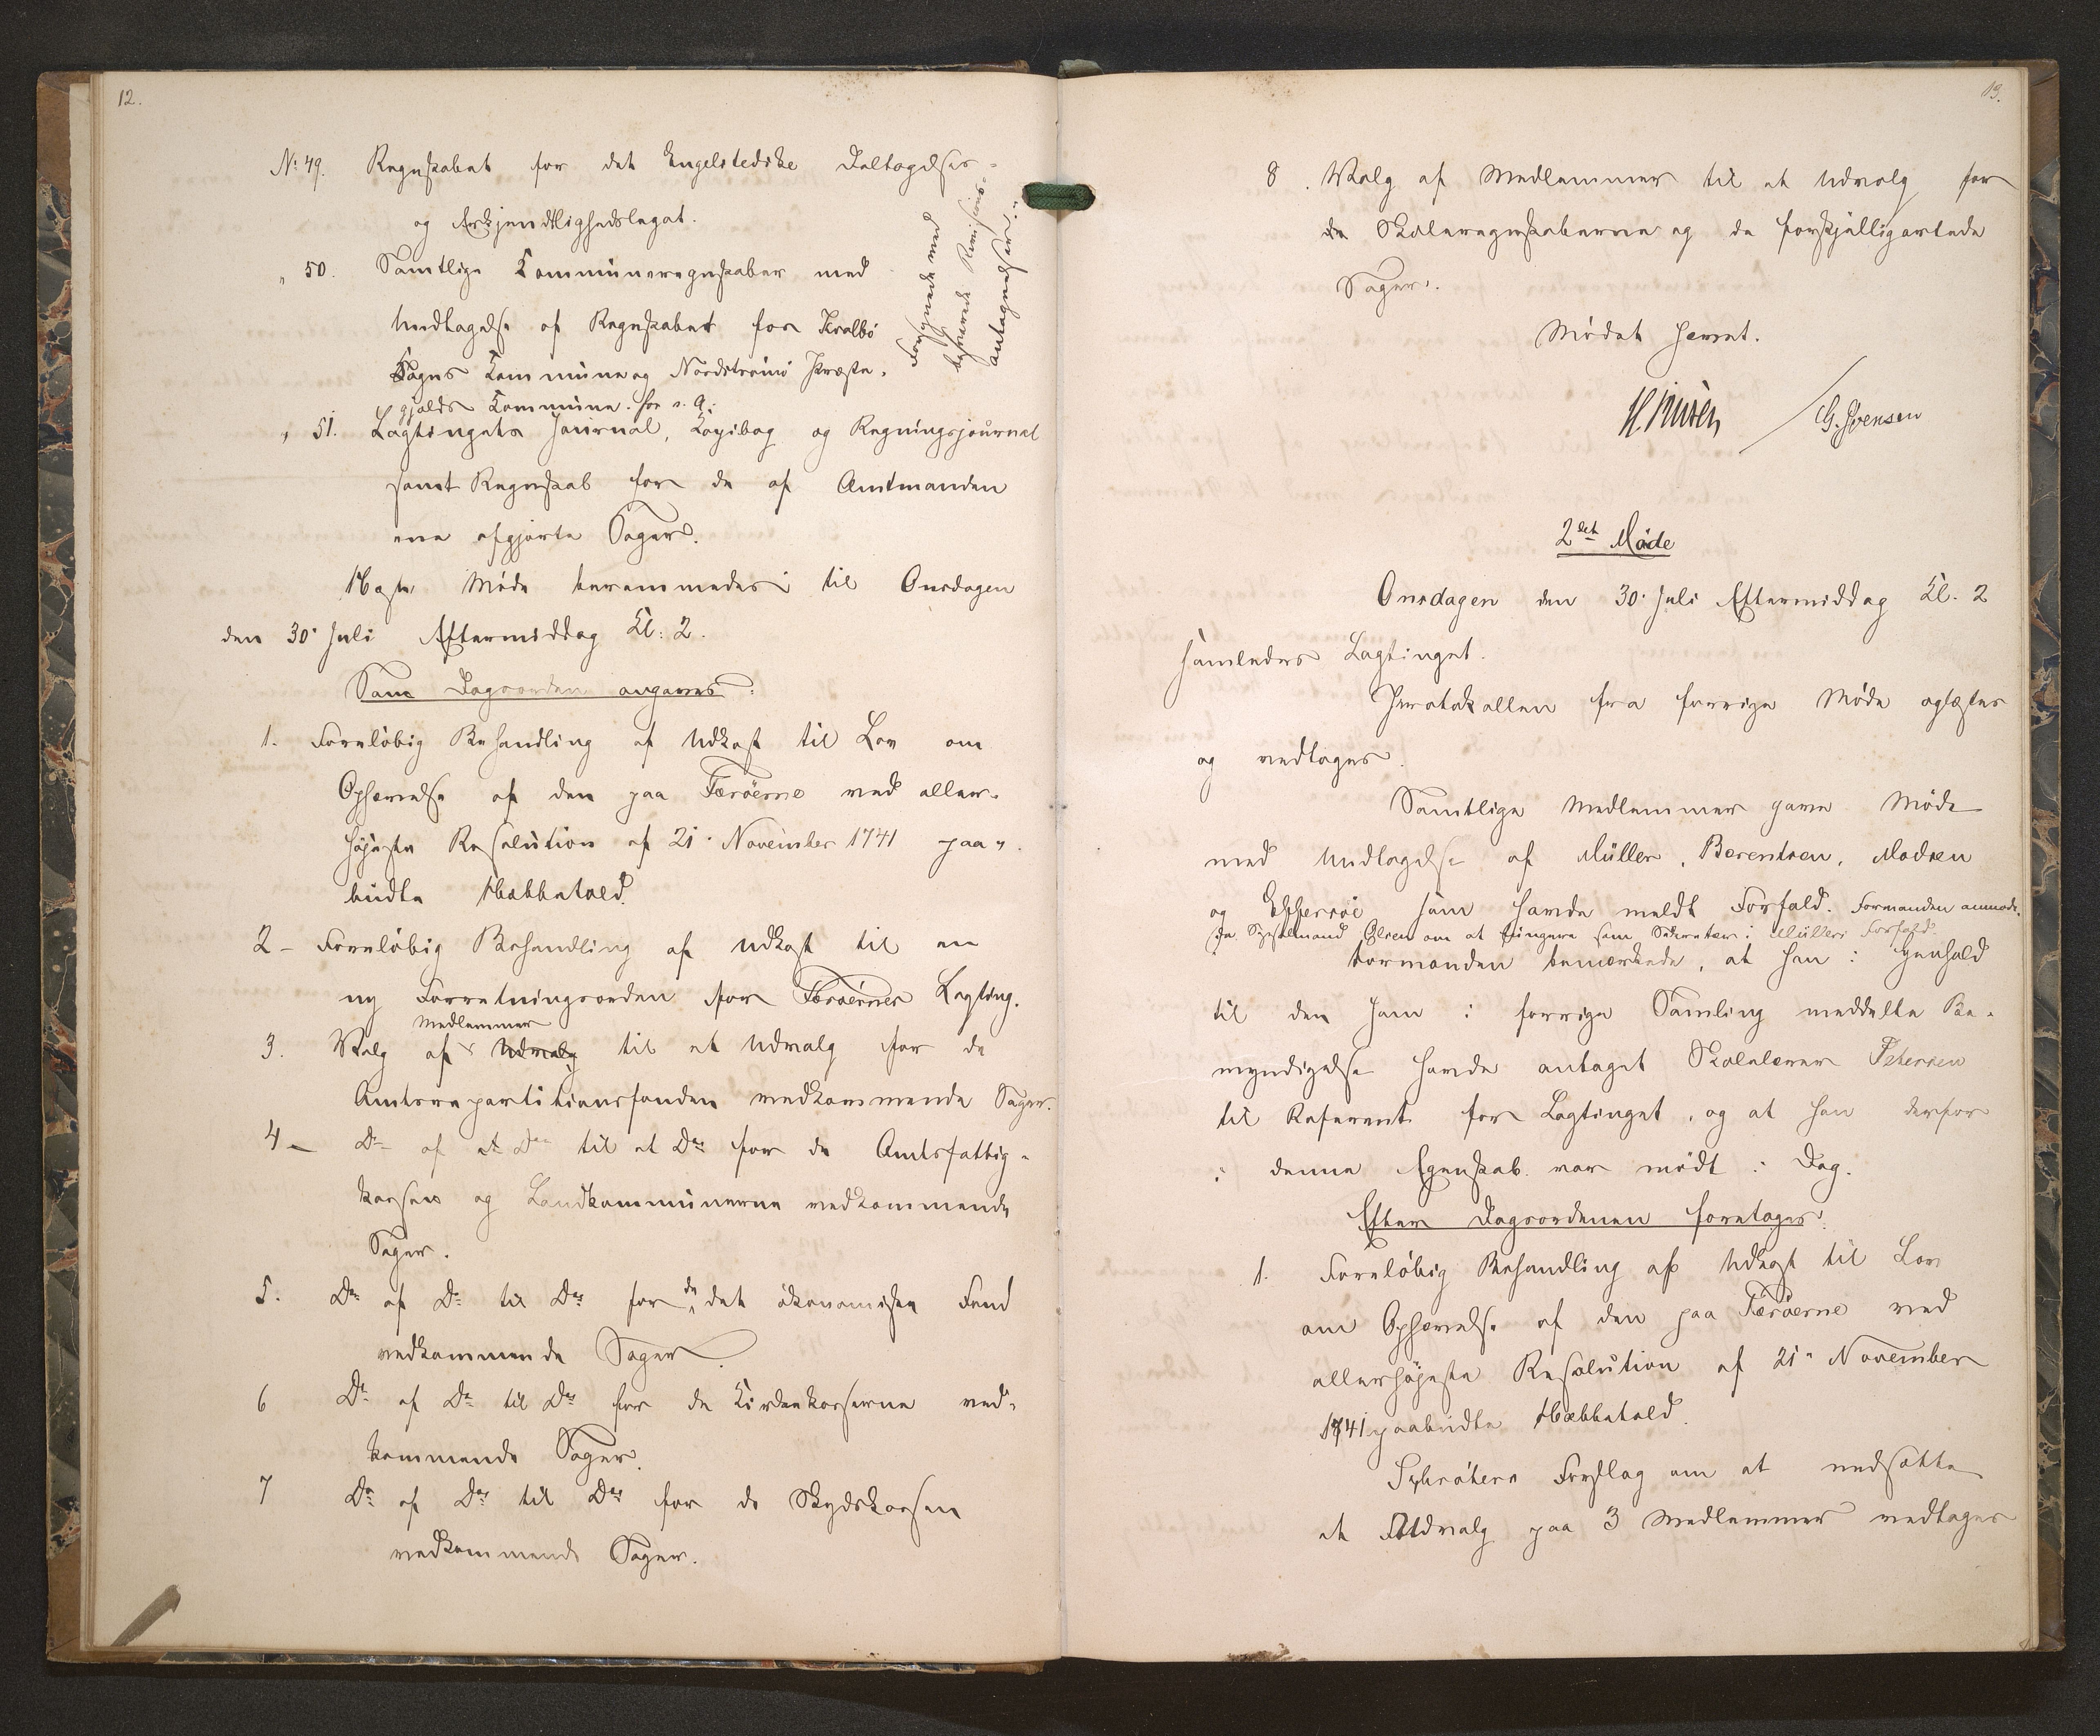 12.
No 49. Regnskabet for det Engelstedske Deeltagelses-
og Erkjendtlighedslegat.
" 50. Samtlige Kommuneregnskaber med
Undtagelse af Regnskabet for Kvalbø
Sogns Kommune og Nordstrømø Præste-
gjælds Kommune. for s. A.
Forsynede med
behørede Revisions-
antegnelser.
" 51. Lagtingets Journal, Kopibog og Regningsjournal
samt Regnskab for de af Amtmanden
ene afgjorte Sager.
Næste Møde berammedes til Onsdagen
den 30. Juli Eftermiddag Kl. 2.
Som Dagsorden angaves:
1. Foreløbig Behandling af Udkast til Lov om
Ophævelse af den paa Færöerne ved aller-
højeste Resolution af 21. November 1741 paa-
budte Næbbetold.
2 - Foreløbig Behandling af Udkast til en
ny Forretningsorden for Færøernes Lagting.
3. Valg af Medlemmer Udvalg til et Udvalg for de
Amtsrepartitionsfonden vedkommende Sager.
4 - Do af Do til et Do for de Amtsfattig-
kassen og Landkommunerne vedkommende
Sager.
5. Do af Do til Do for de det økonomiske Fond
vedkommende Sager.
6 Do af Do til Do for de Kirkekasserne ved-
kommende Sager.
7 Do af Do til Do for de Skydskassen
vedkommende Sager.
13.
8. Valg af Medlemmer til et Udvalg for
de Skoleregnskaberne og de forskjelligartede
Sager.
Mødet hævet.
G. Svensen
2det Møde
Onsdagen den 30. Juli Eftermiddag Kl. 2
samledes Lagtinget.
Protokollen fra forrige Møde oplæstes
og vedtoges.
Samtlige Medlemmer gave Møde
med Undtagelse af Müller, Berentsen, Madsen
og Effersøe som havde meldt Forfald. Formanden anmode-
de Sysselmand Olsen om at fungere som Sekretær i Müllers Forfald.
Formanden bemærkede, at han i Henhold
til den ham i forrige Samling meddelte Be-
myndigelse havde antaget Skolelærer Petersen
til Referent for Lagtinget, og at han derfor
i denne Egenskab var mødt i Dag.
Efter Dagsordenen foretoges:
1. Foreløbig Behandling af Udkast til Lov
om Ophævelse af den paa Færøerne ved
allerhøjeste Resolution af 21. November
1741 paabudte Næbbetold.
Schrøters Forslag om at nedsætte
et Udvalg paa 3 Medlemmer vedtoges